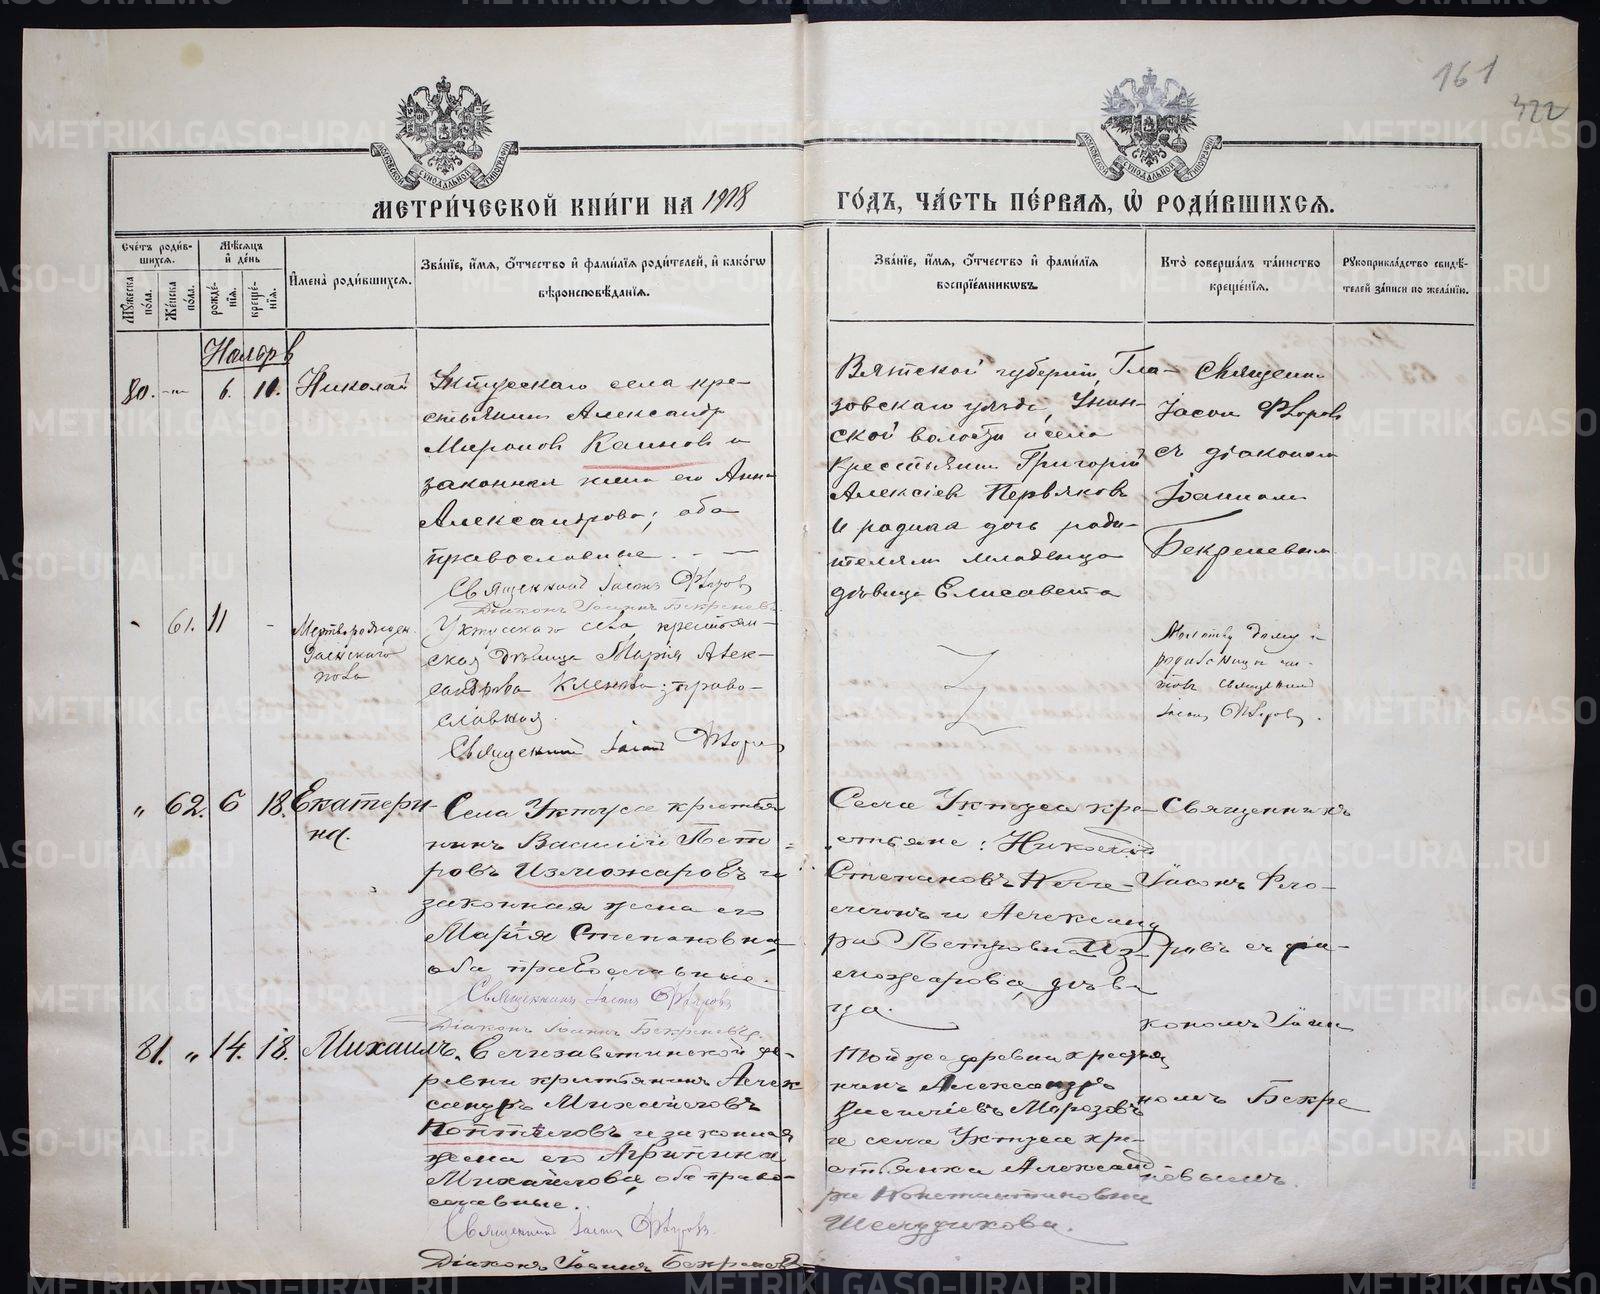 161
322
МЕТРИ́ЧЕСКОЙ КНИ́ГИ НА 1918 ГО́ДЪ, ЧА́СТЬ ПЕ́РВАЯ, Ѡ РОДИ́ВШИХСЯ.
Сче́тъ роди́в-
шихся.
Мѣ́сяцъ
и҆ де́нь
Му́жеска
по́ла.
Же́нска
по́ла.
рожде́-
нїѧ.
креще́-
нїѧ.
И҆мена̀ роди́вшихся.
Зва́нїе, и҆́мя, ѻ҆́тчество и҆ фами́лїя роди́телей, и҆ како́гѡ
вѣроисповѣ́данїя.
Зва́нїе, и҆́мя, ѻ҆́тчество и҆ фами́лїя
воспрїе́мникѡвъ.
Кто̀ соверша́лъ та́инство
креще́нїя.
Рукоприкла́дство свидѣ́-
телей за́писи по жела́нїю.
Ноябрь
80. 6. 10. Николай
Уктусскаго села кре-
стьянин Александр
Миронов Клинов и
законная жена его Анна
Александрова; оба
православные.
Священник Іасон Флоров
Діаконъ Іоаннъ Бекреневъ
Вятской губерніи, Гла-
зовскаго уезда, Унин-
ской волости и села
крестьянин Григорій
Алексіев Первяков
и родная дочь роди-
телям младенца
дѣвица Елисавета
Священник
Іасон Флоров
съ діаконом
Іоанном
Бекреневым
61. 11 -
Мертворожден.
женскаго
пола
Уктусскаго села крестьян-
ская дѣвица Марія Алек-
сандрова Клинова; право-
славная.
Священник Іасон Флоров
Молитву дому и
родильницѣ чи-
тал священник
Іасон Флоров.
" 62. 6 18. Екатери-
на.
Села Уктуса крестья
нинъ Василій Пет-
ровъ Изможаровъ и
законная жена его
Марія Степановна,
оба православные.
Священникъ Іасон Флоровъ
Діаконъ Іоаннъ Бекреневъ.
Села Уктуса кре-
стьяне: Николай
Степановъ
и Александ
ра Петровна Из
можарова, дѣви
ца.
Священникъ
Іасонъ Фло-
ровъ съ діа-
кономъ Іоан
номъ Бекре
невымъ.
81. " 14. 18. Михаилъ.
Елизаветинской де-
ревни крестьянинъ Алек
сандръ Михайловъ
Коптяловъ и законная
жена его Агрипина
Михайлова, оба право-
славные.
Священник Іасон Флоровъ.
Діаконъ Іоаннъ Бекренев
Той же деревни крестья
нинъ Александръ
Васильевъ Морозовъ
и села Уктуса кре-
стьянка Александ
ра Константиновна
Шелудикова.
METRIKI.GASO-URAL.RU